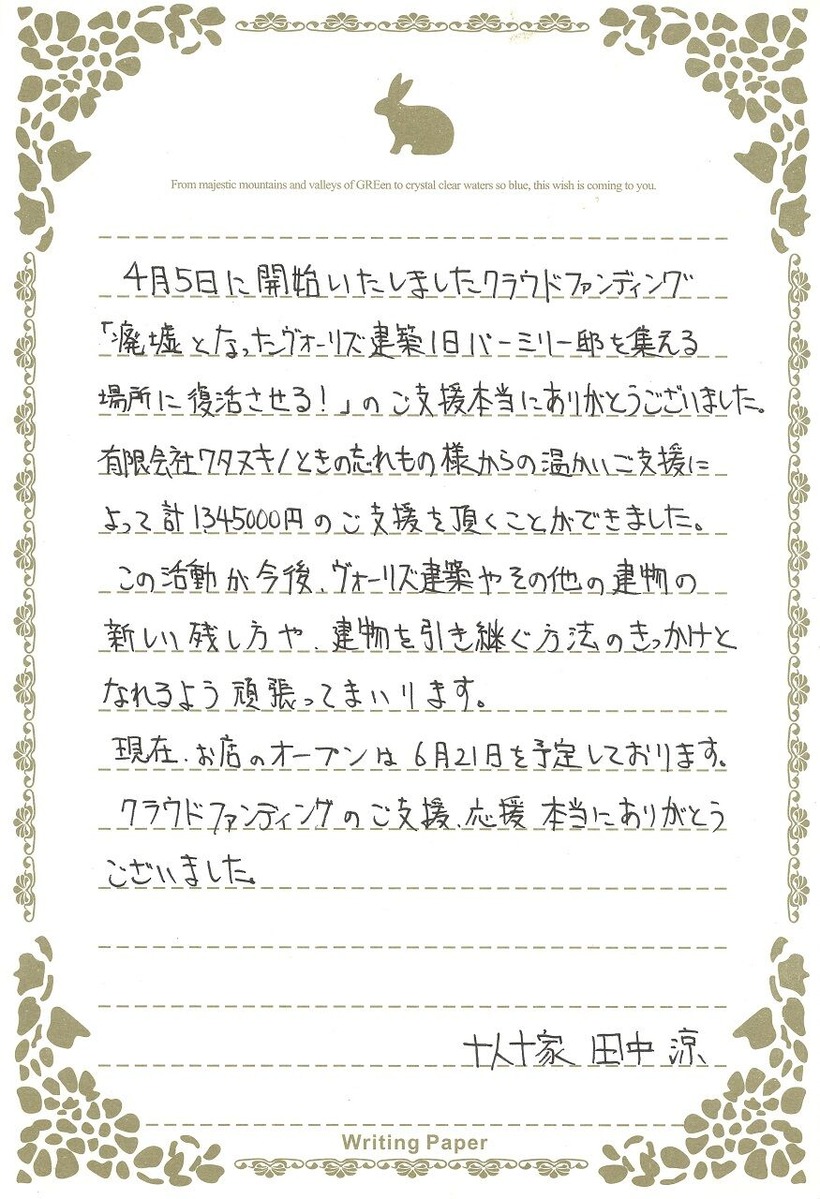 From majestic mountains and valleys of GREen to crystal clear waters so blue, this wish is coming to you.
4月5日に開始いたしましたクラウドファンディング
「廃墟となったヴォーリズ建築旧パーミリー邸を集える
場所に復活させる!」のご支援本当にありがとうございました。
有限会社ワタヌキ/ときの忘れもの様からの温かいご支援に
よって計1345000円のご支援を頂くことができました。
この活動が今後、ヴォーリズ建築やその他の建物の
新しい残し方や、建物を引き継ぐ方法のきっかけと
なれるよう頑張ってまいります。
現在、お店のオープンは6月21日を予定しております。
クラウドファンディングのご支援、応援本当にありがとう
ございました。
十人十家 田中 涼
Writing Paper